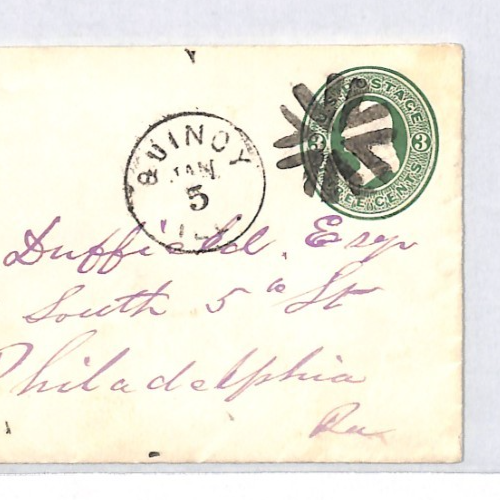 QUINCY
JAN.
5
ILL.
U.S. POSTAGE
3 3
THREE CENTS
Duffield, Esqr
South 5th St
Philadelphia
Pa